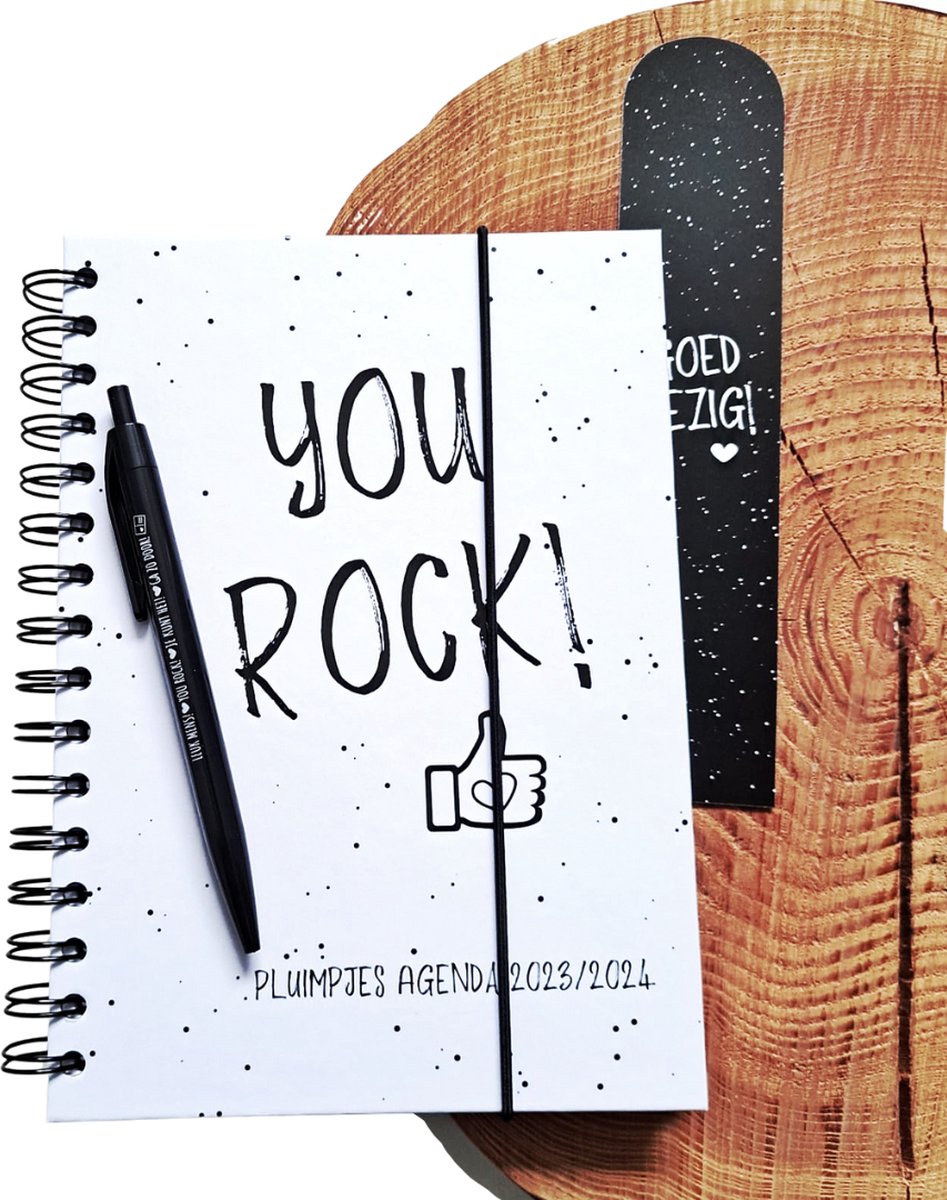 YOU
ROCK!
PLUIMPJES AGENDA 2023/2024
LEUK MENS! YOU ROCK! JE KUNT HET! GA ZO DOOR!
GOED
EZIG!